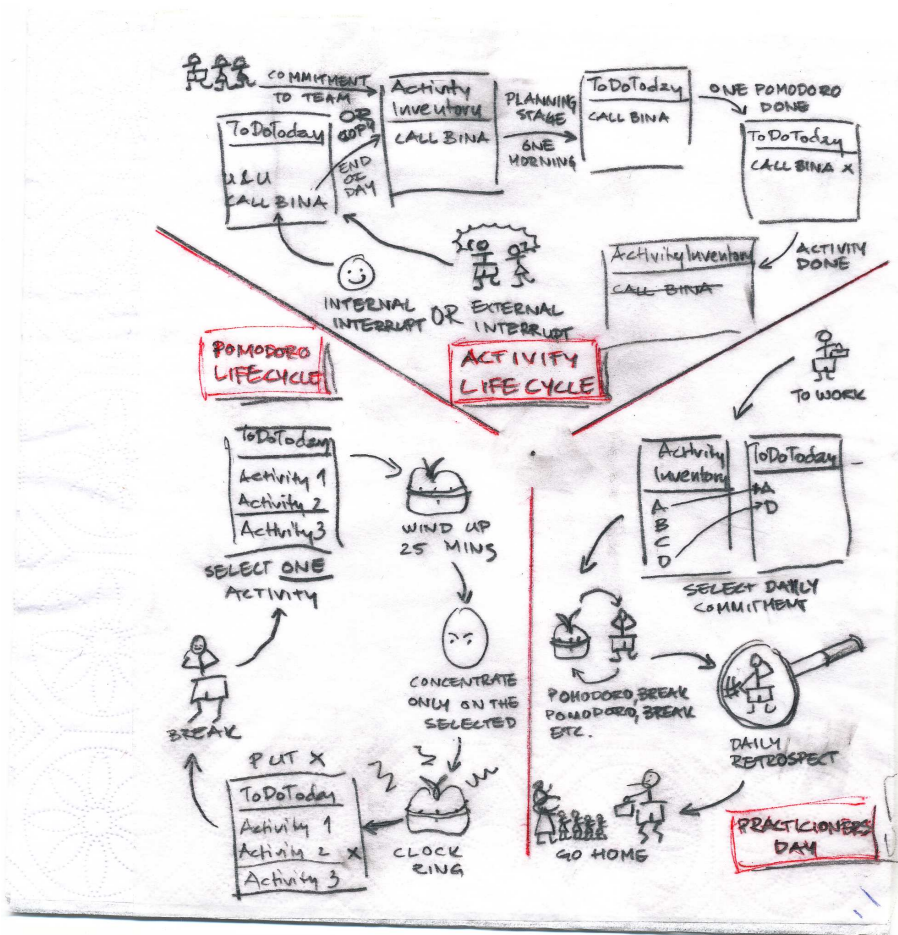 COMMITMENT
TO TEAM
OR
COPY
ToDoToday
U & U
CALL BINA
END
OF
DAY
Activity
Inventory
CALL BINA
PLANNING
STAGE
ONE
MORNING
ToDoToday
CALL BINA
ONE POMODORO
DONE
ToDoToday
CALL BINA X
ACTIVITY
DONE
Activity Inventory
CALL BINA
INTERNAL
INTERRUPT
OR
EXTERNAL
INTERRUPT
ACTIVITY
LIFE CYCLE
POMODORO
LIFE CYCLE
ToDoToday
Activity 1
Activity 2
Activity 3
SELECT ONE
ACTIVITY
WIND UP
25 MINS
CONCENTRATE
ONLY ON THE
SELECTED
CLOCK
RING
PUT X
ToDoToday
Activity 1
Activity 2 X
Activity 3
BREAK
TO WORK
Activity
Inventory
A
B
C
D
ToDoToday
A
D
SELECT DAYLY
COMMITMENT
POMODORO, BREAK
POMODORO, BREAK
ETC.
DAILY
RETROSPECT
GO HOME
PRACTICIONERS
DAY